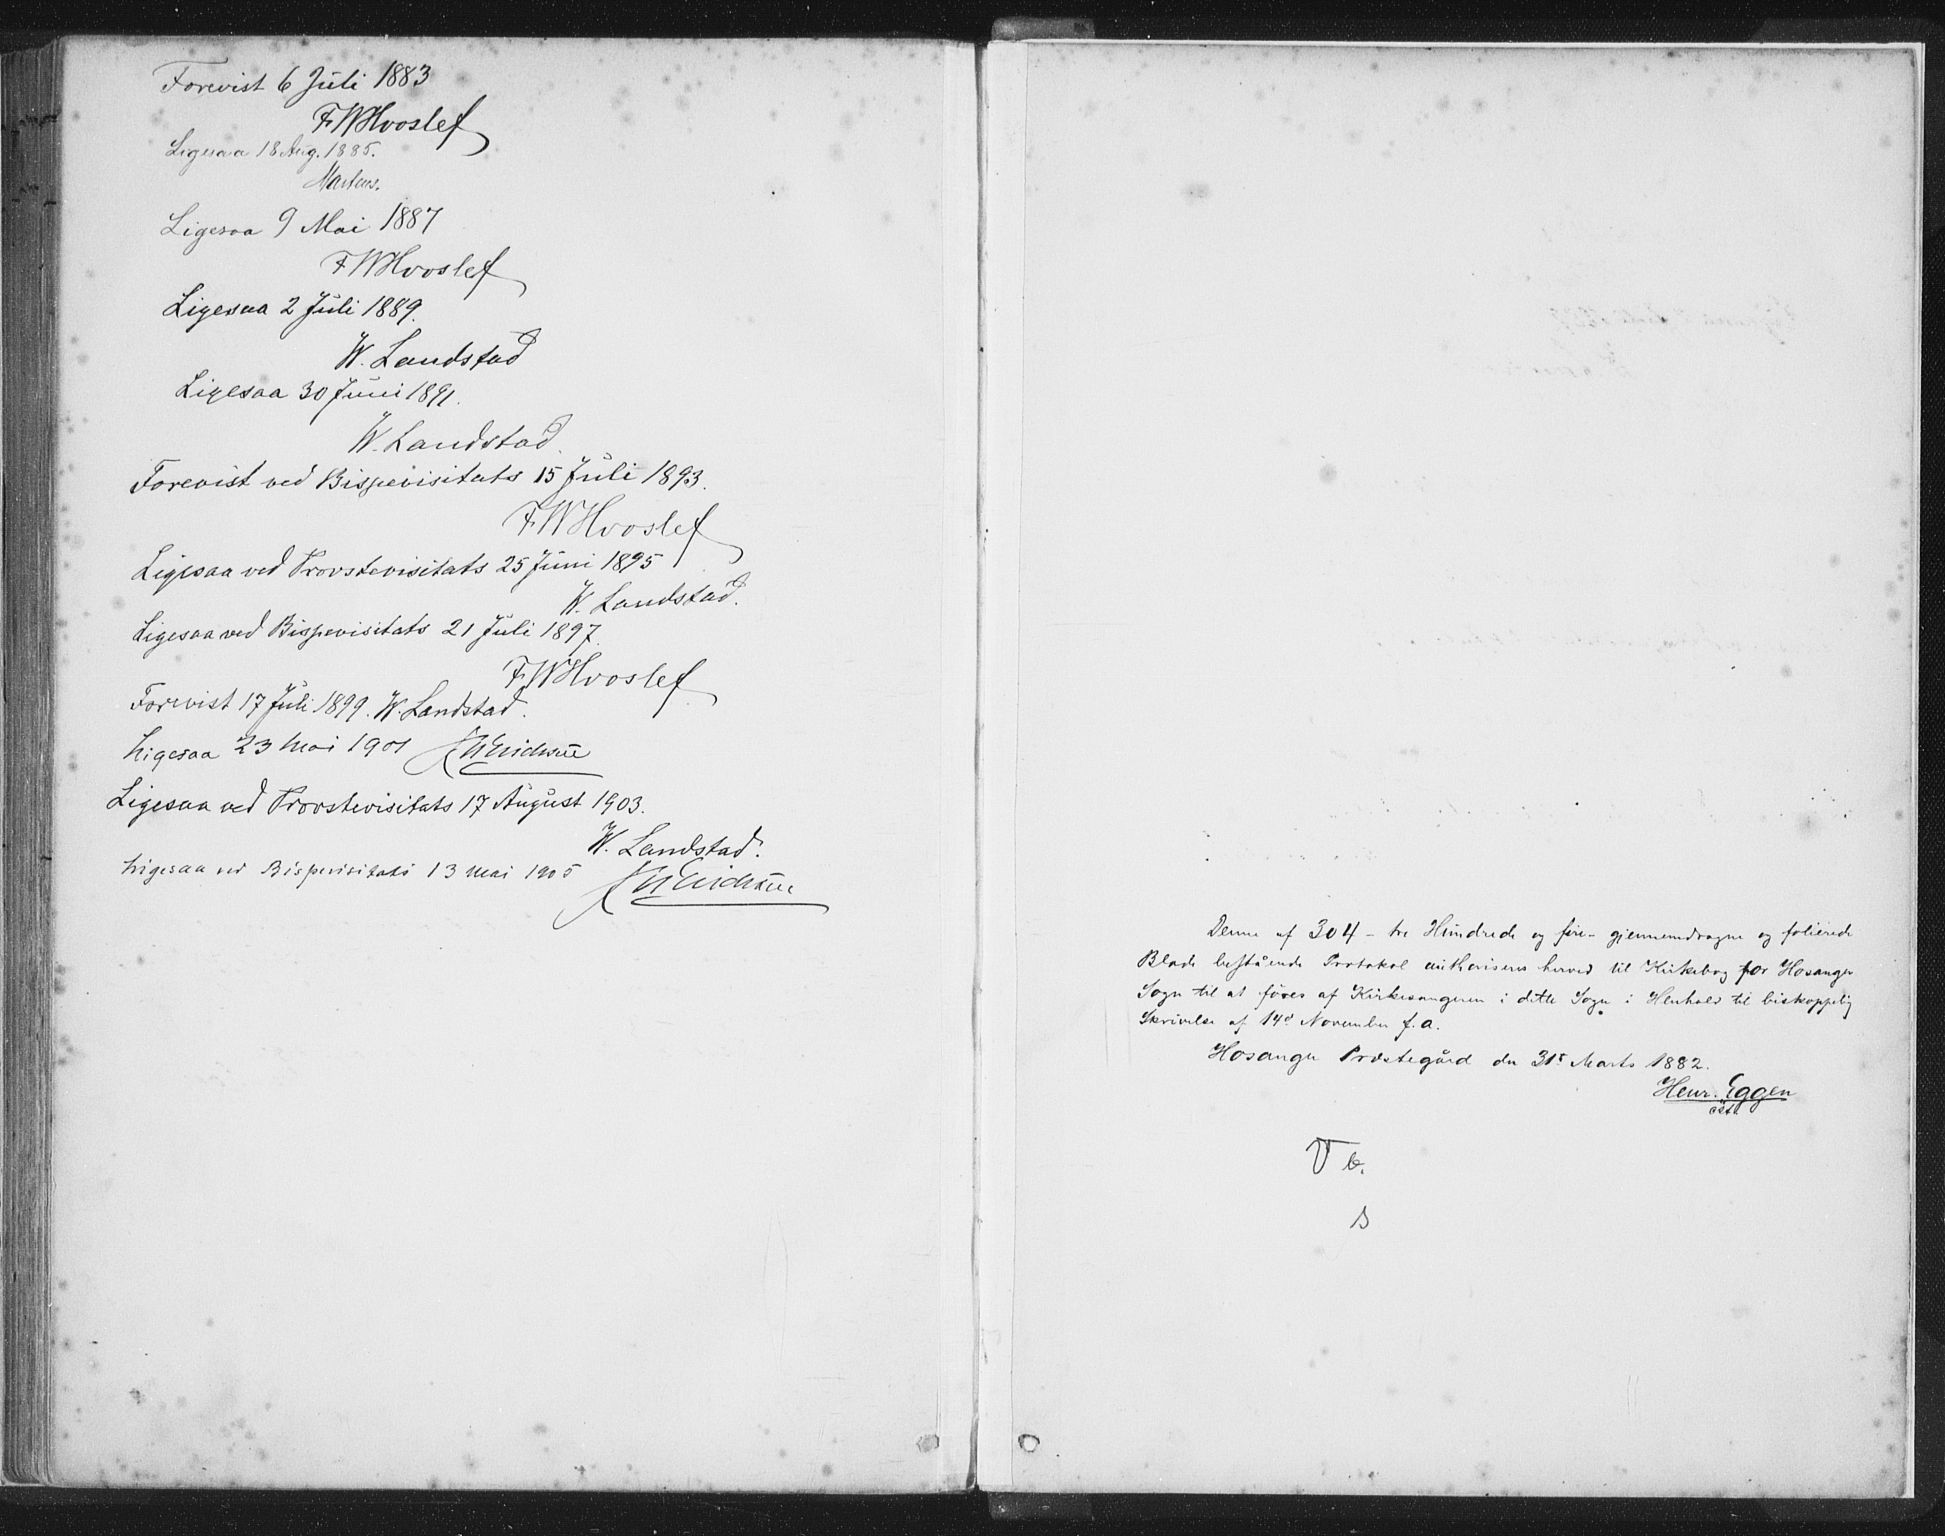 Forevist 6 Juli 1883
FWHvoslef
Ligesaa 18 Aug. 1885.
Martens.
Ligesaa 9 Mai 1887
FWHvoslef
Ligesaa 2 Juli 1889.
W. Landstad
Ligesaa 30 Juni 1891.
W. Landstad.
Forevist ved Bispevisitats 15 Juli 1893.
FWHvoslef
Ligesaa ved Provstevisitats 25 Juni 1895
W. Landstad.
Ligesaa ved Bispevisitats 21 Juli 1897.
FWHvoslef
Forevist 17 Juli 1899. W. Landstad.
Ligesaa 23 Mai 1901
Ligesaa ved Provstevisitats 17 August 1903.
W. Landstad.
Ligesaa ved Bispevisitats 13 Mai 1905
Denne af 304 - tre Hundrede og fire - gjennemdragne og folierede
Blade bestående Protokol authoriseres herved til Kirkebog for Hosanger
Sogn til at føres af Kirkesangeren i dette Sogn i Henhold til biskoppelig
Skrivelse af 14d November f. a.
Hosanger Præstegård den 31t Marts 1882.
Henr. Eggen
cst.
V b.